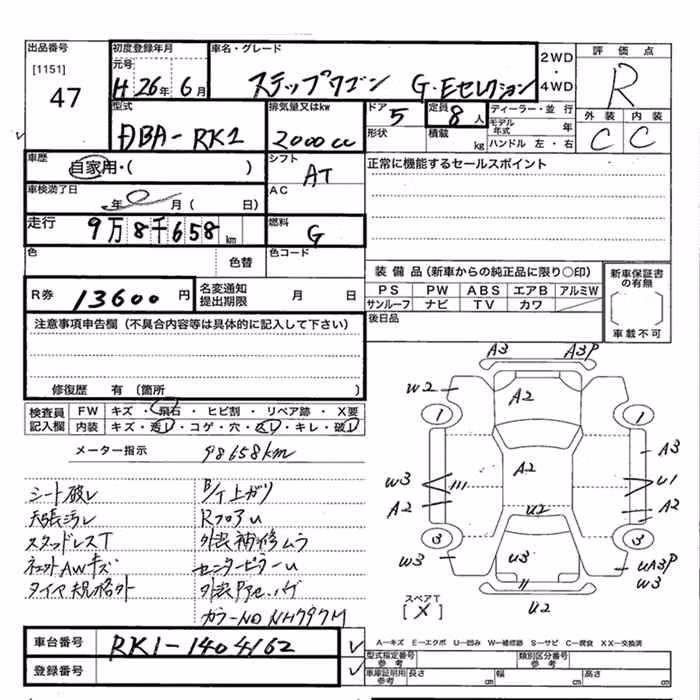 出品番号
[1151]
47
初度登録年月
元号
H 26年 6月
車名・グレード
ステップワゴン G・Eセレクション
2WD
・
4WD
評価点
R
型式
DBA-RK1
排気量又はkw
2000cc
ドア
5
形状
定員
8人
積載
kg
ディーラー・並行
モデル年式
年
ハンドル 左・右
外装 内装
C C
車歴
自家用・( )
シフト
AT
正常に機能するセールスポイント
車検満了日
年 月( 日)
AC
走行
9万8千658km
燃料
G
色
色替
色コード
R券 13600円
名変通知
提出期限
月 日
装備品(新車からの純正品に限り○印)
PS PW ABS エアB アルミW
サンルーフ ナビ TV カワ
後日品
新車保証書
の有無
車載不可
注意事項申告欄(不具合内容等は具体的に記入して下さい)
修復歴 有(箇所 )
検査員
記入欄
FW キズ・飛石・ヒビ割・リペア跡・X要
内装 キズ・汚レ・コゲ・穴・スレ・キレ・破レ
メーター指示 98658km
シート破レ
天張汚レ
スタッドレスT
ネット AWキズ
タイヤ規格外
B/T上ガリ
Rフロアu
外装補修ムラ
センターピラーu
カラーNO NH797M
A3 A3P
W2
A2
1 1
A3
W3
A2
U1
A2
A2
U2
3 3
W3
U3
UA3P
W3
U2
スペアT
[X]
A−キズ E−エクボ U−凹み W−補修跡 S−サビ C−腐食 XX−交換済
車台番号 RK1-1404162
登録番号
型式指定番号
参考
類別区分番号
参考
車庫証明用
参考
長さ cm
幅 cm
高さ cm